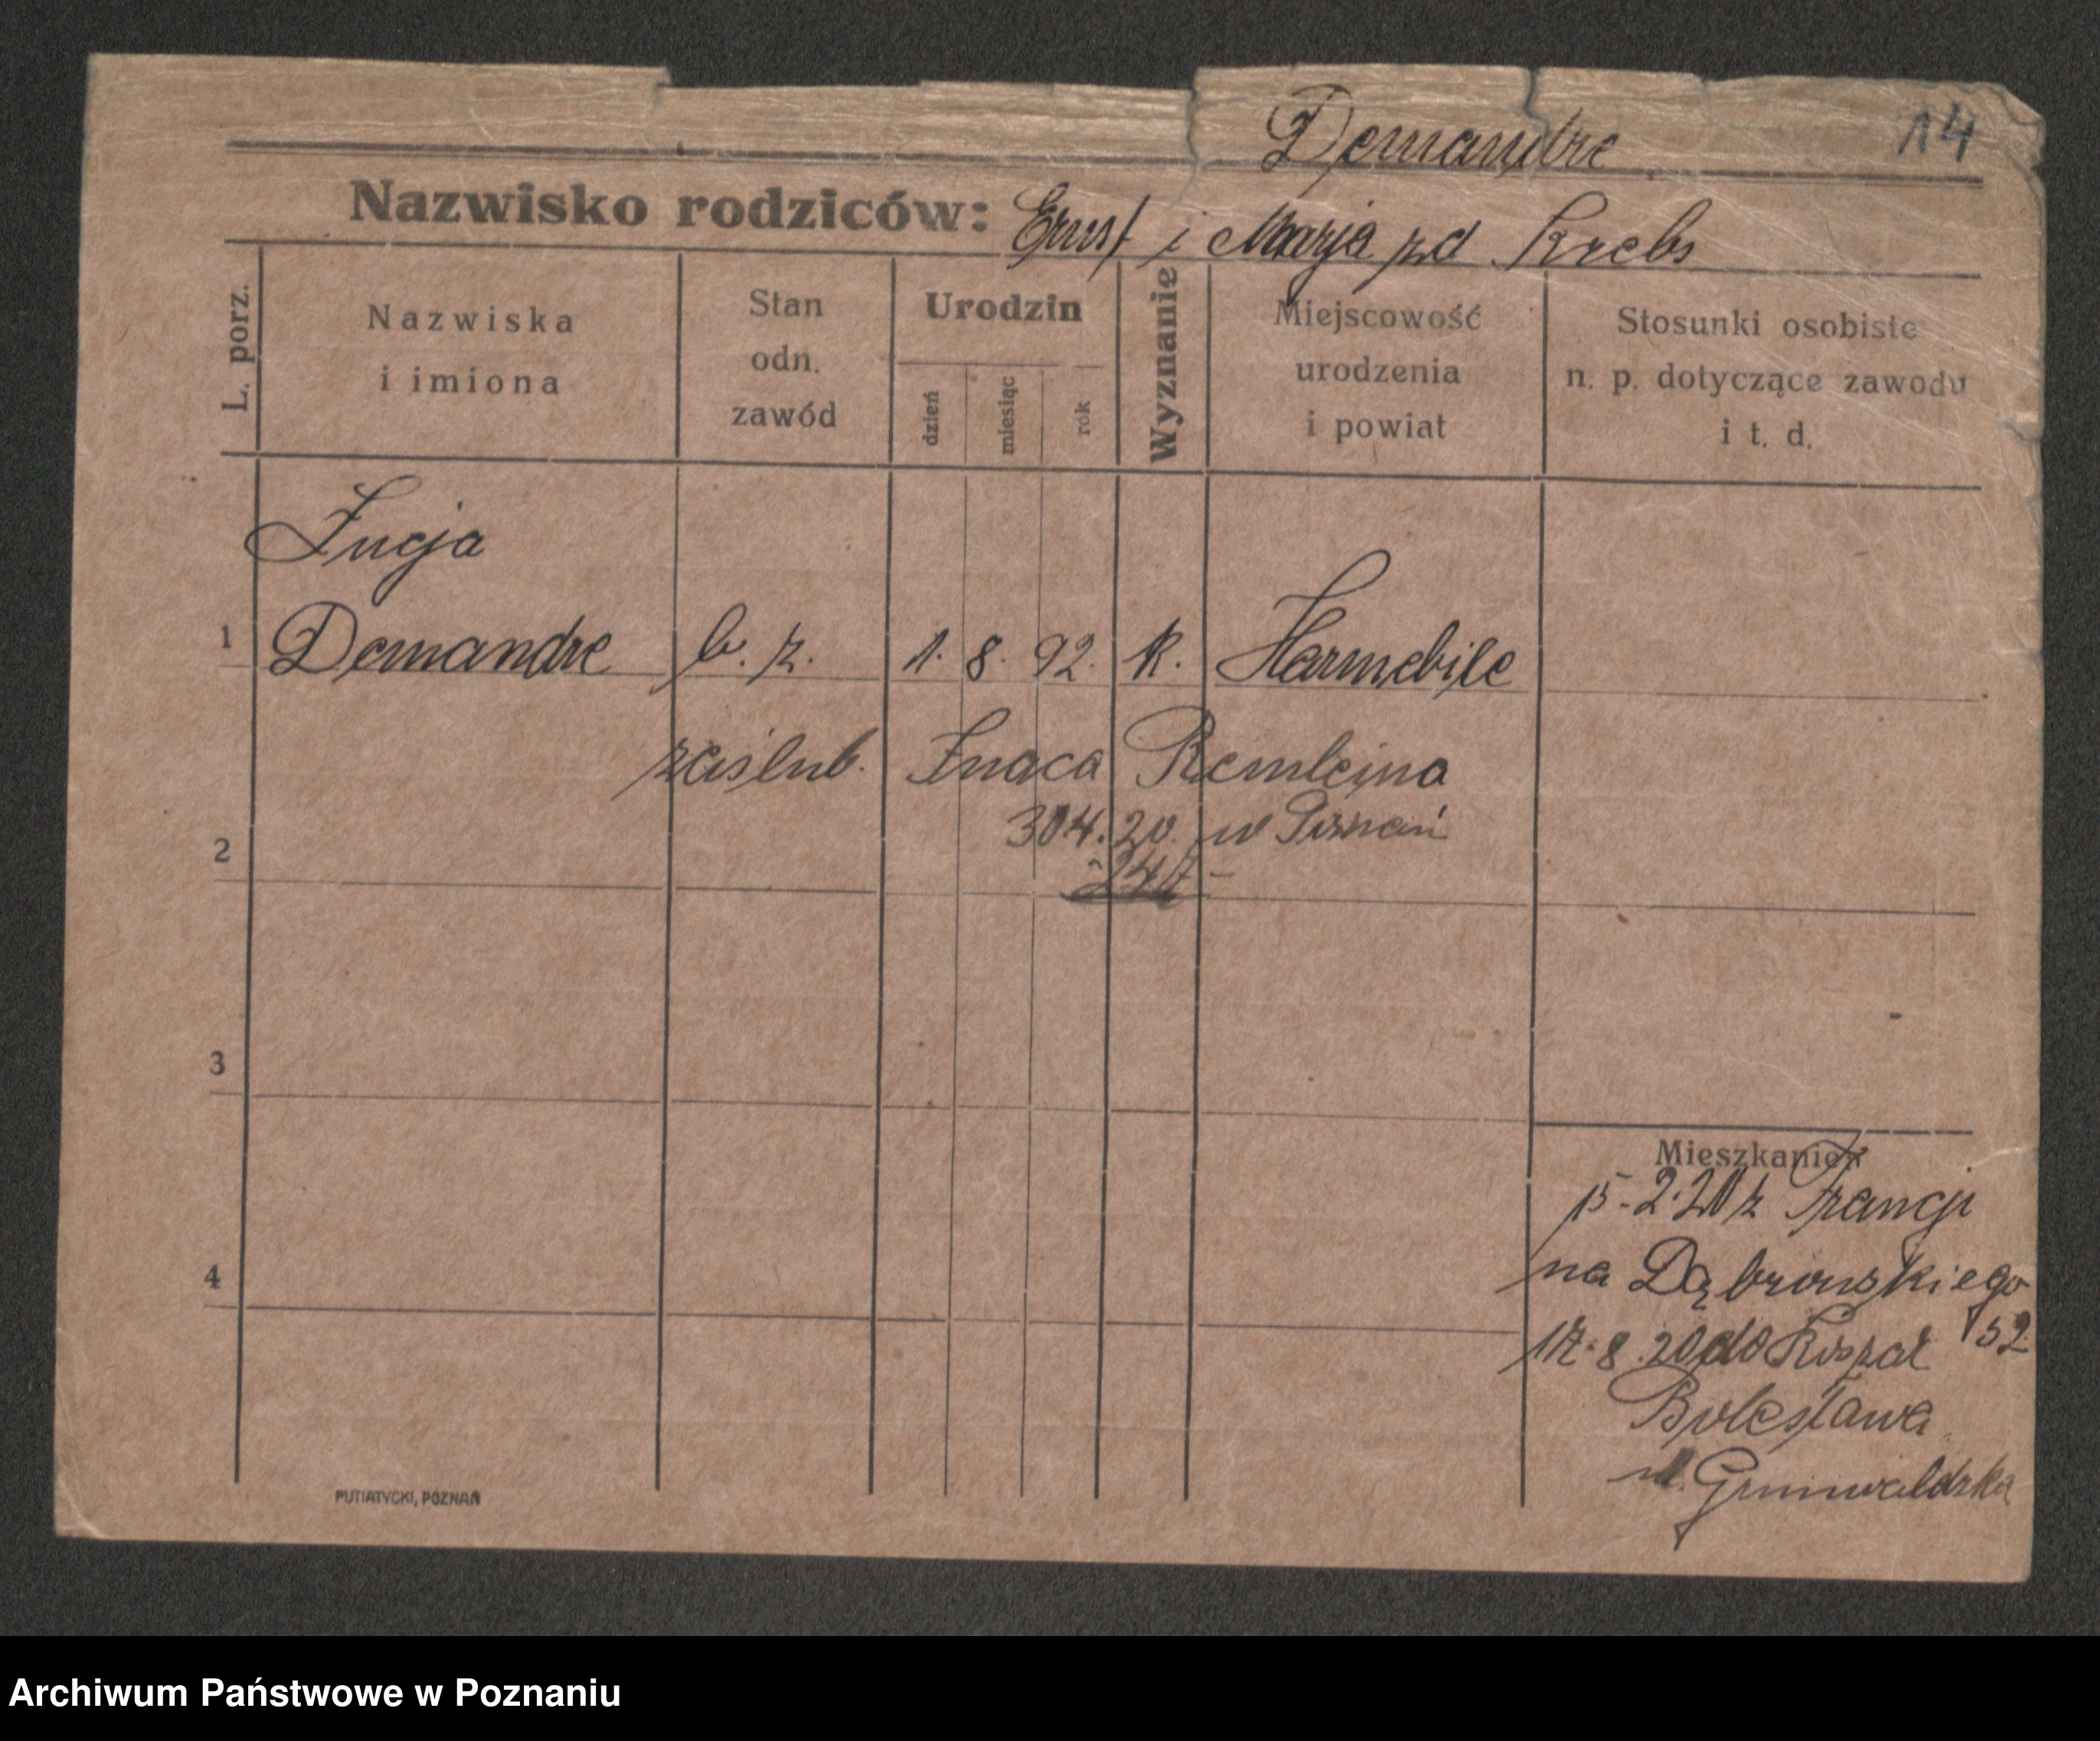 Demandre 14
Nazwisko rodziców: Ernst i Marja zd Krebs
L. porz.
Nazwiska
i imiona
Stan
odn.
zawód
Urodzin
dzień
miesiąc
rok
Wyznanie
Miejscowość
urodzenia
i powiat
Stosunki osobiste
n. p. dotyczące zawodu
i t. d.
Łucja
1 Demandre b. z. 1. 8. 92. k. Harmebile
zaślub. Ignaca Rembeina
30.4.20. w Poznań
2
247
3
Mieszkanie
15-2.20 z Francji
na Dąbrowskiego
52
4
17.8.20 do
Bolesława
ul. Grunwaldzka
PUTIATYCKI, POZNAŃ
Archiwum Państwowe w Poznaniu